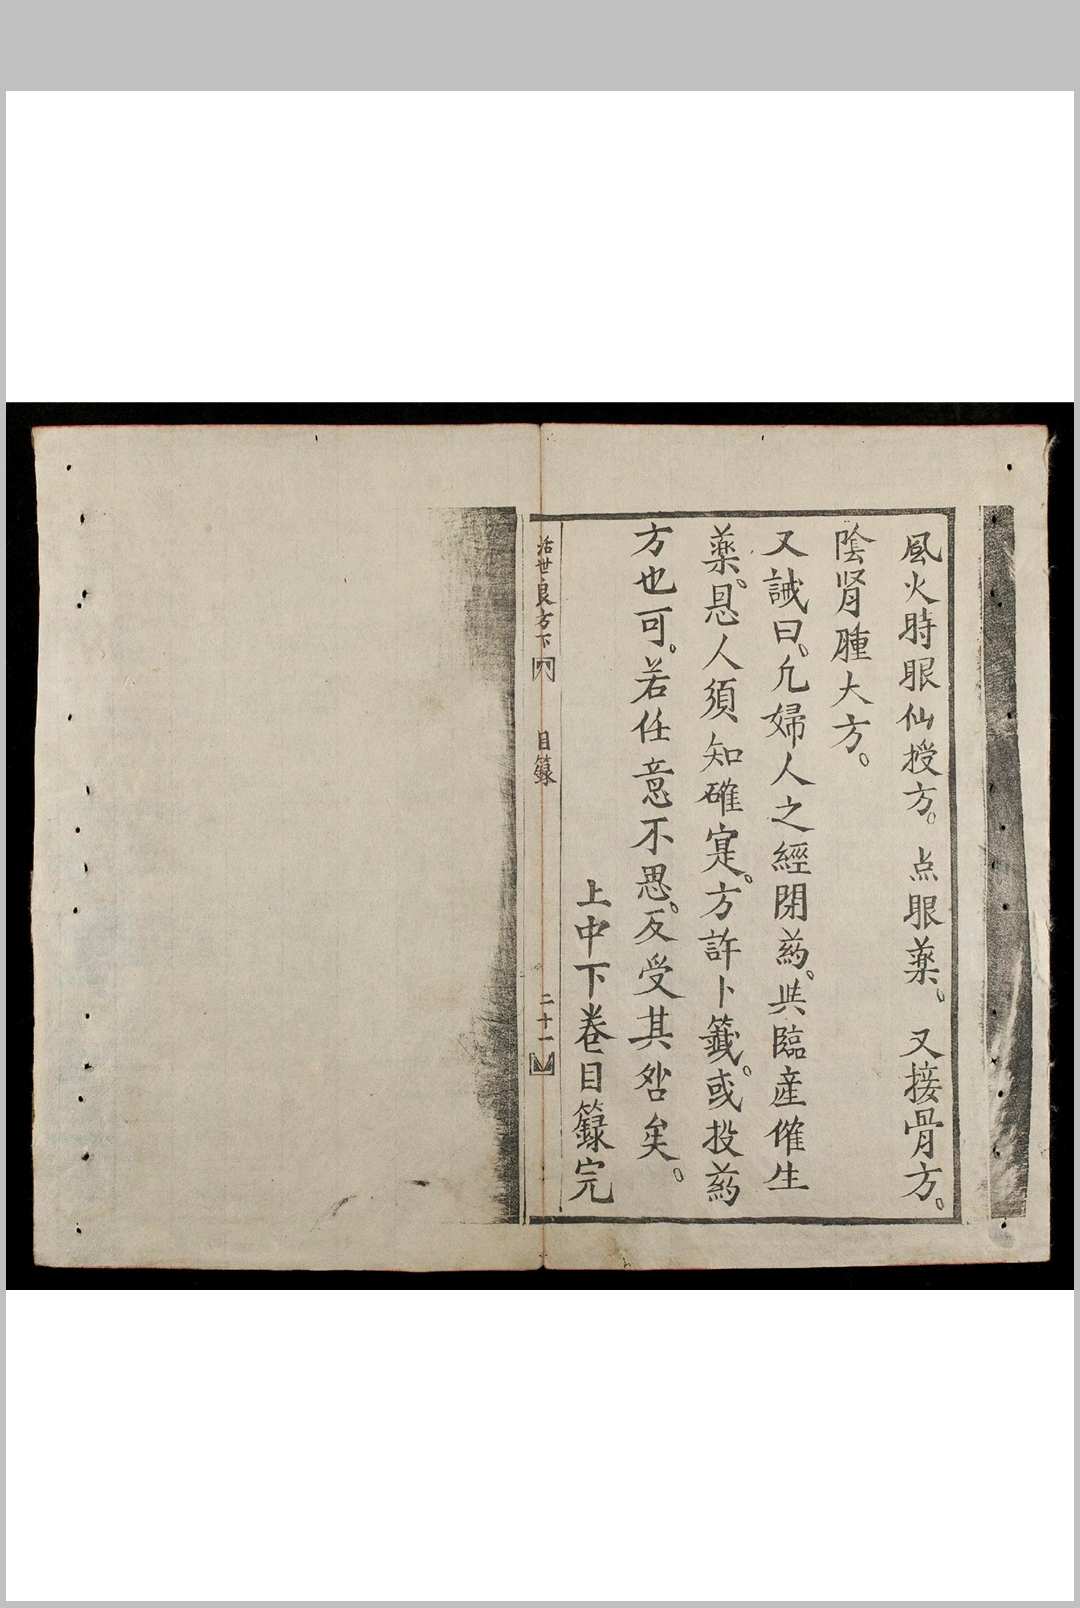 風火時眼仙授方。点眼薬。又接骨方。
陰肾腫大方。
又誡曰。凢婦人之經閉药。共臨產催生
薬。患人須知確寔。方許卜籤。或投药
方也可。若任意不思。反受其咎矣。
上中下卷目籙完
活世良方下
目籙
二十一